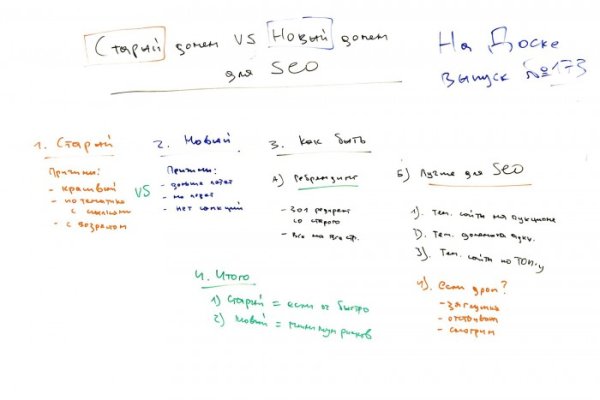 Старый домен VS Новый домен
для SEO
На Доске
выпуск №173
1. Старый
Причины:
- красивый
- по тематике
с ссылками
- с возрастом
VS
2. Новый
Причины:
- дольше
- нет санкций
3. Как быть
А) Ребрендинг
- 301 редирект
со старого
- все на все стр.
Б) Лучше для SEO
1). Тем. сайты на аукционе
2). Тем. домены аукц.
3). Тем. сайты по ТОП-у
4) если дроп?
- загнулив
- отстаивам
- смотрим
4. Итого
1) Старый = если оч быстро
2) Новый = минимум рисков